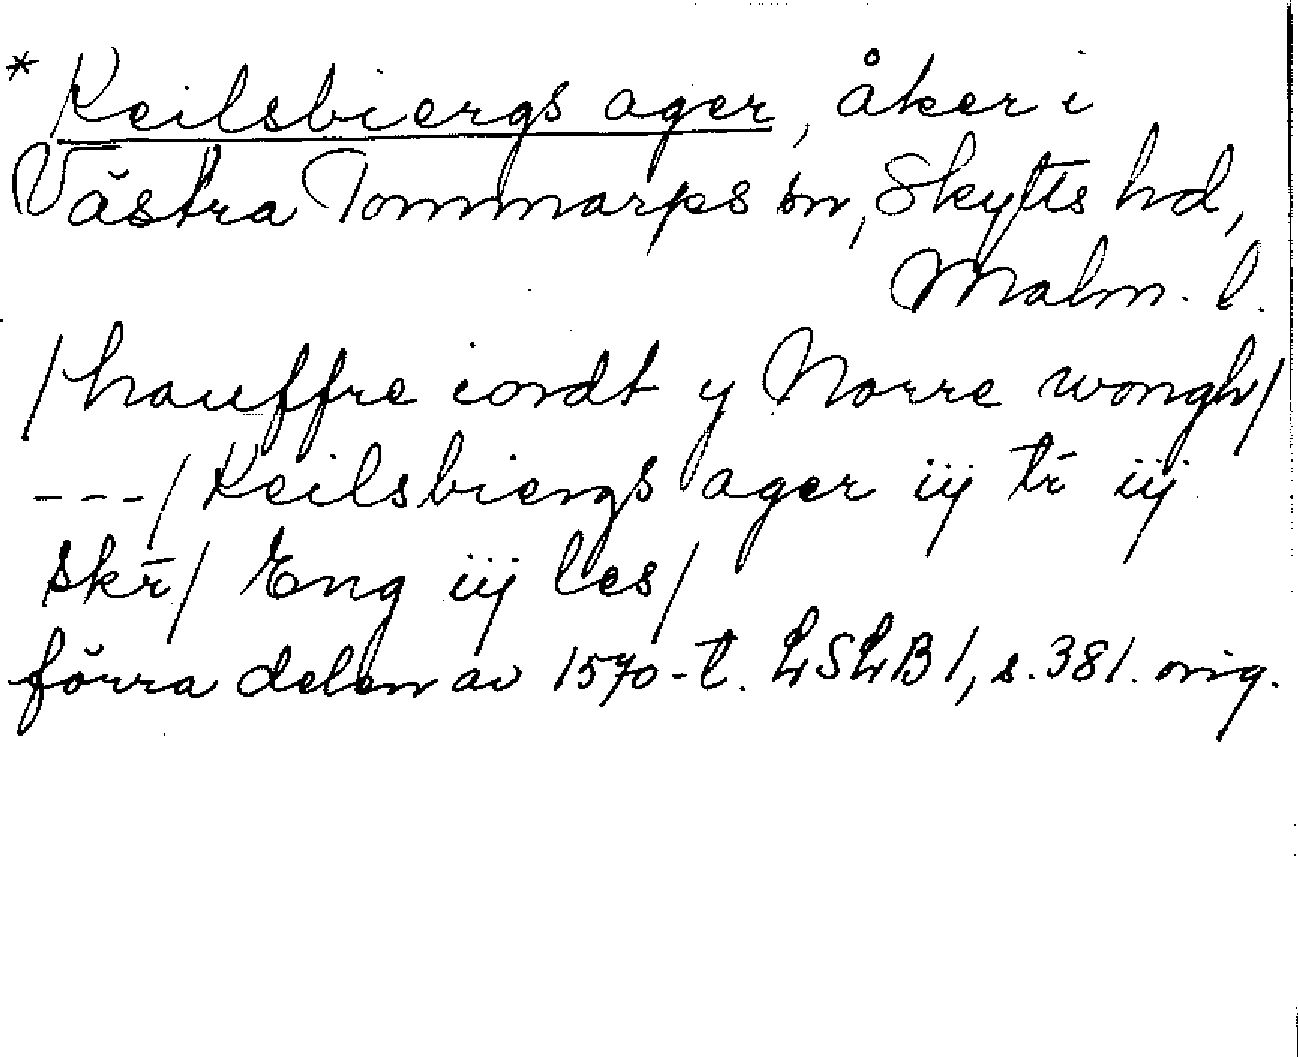 * Keilsbiergs ager, åker i
Västra Tommarps sn, Skytts hd,
Malm. l.
/hauffre iordt y Norre wongh/
---/Keilsbiergs ager iij tr̄ iij
skr̄/ Eng iij les/
förra delen av 1570-t. LSLB 1, s. 381. orig.